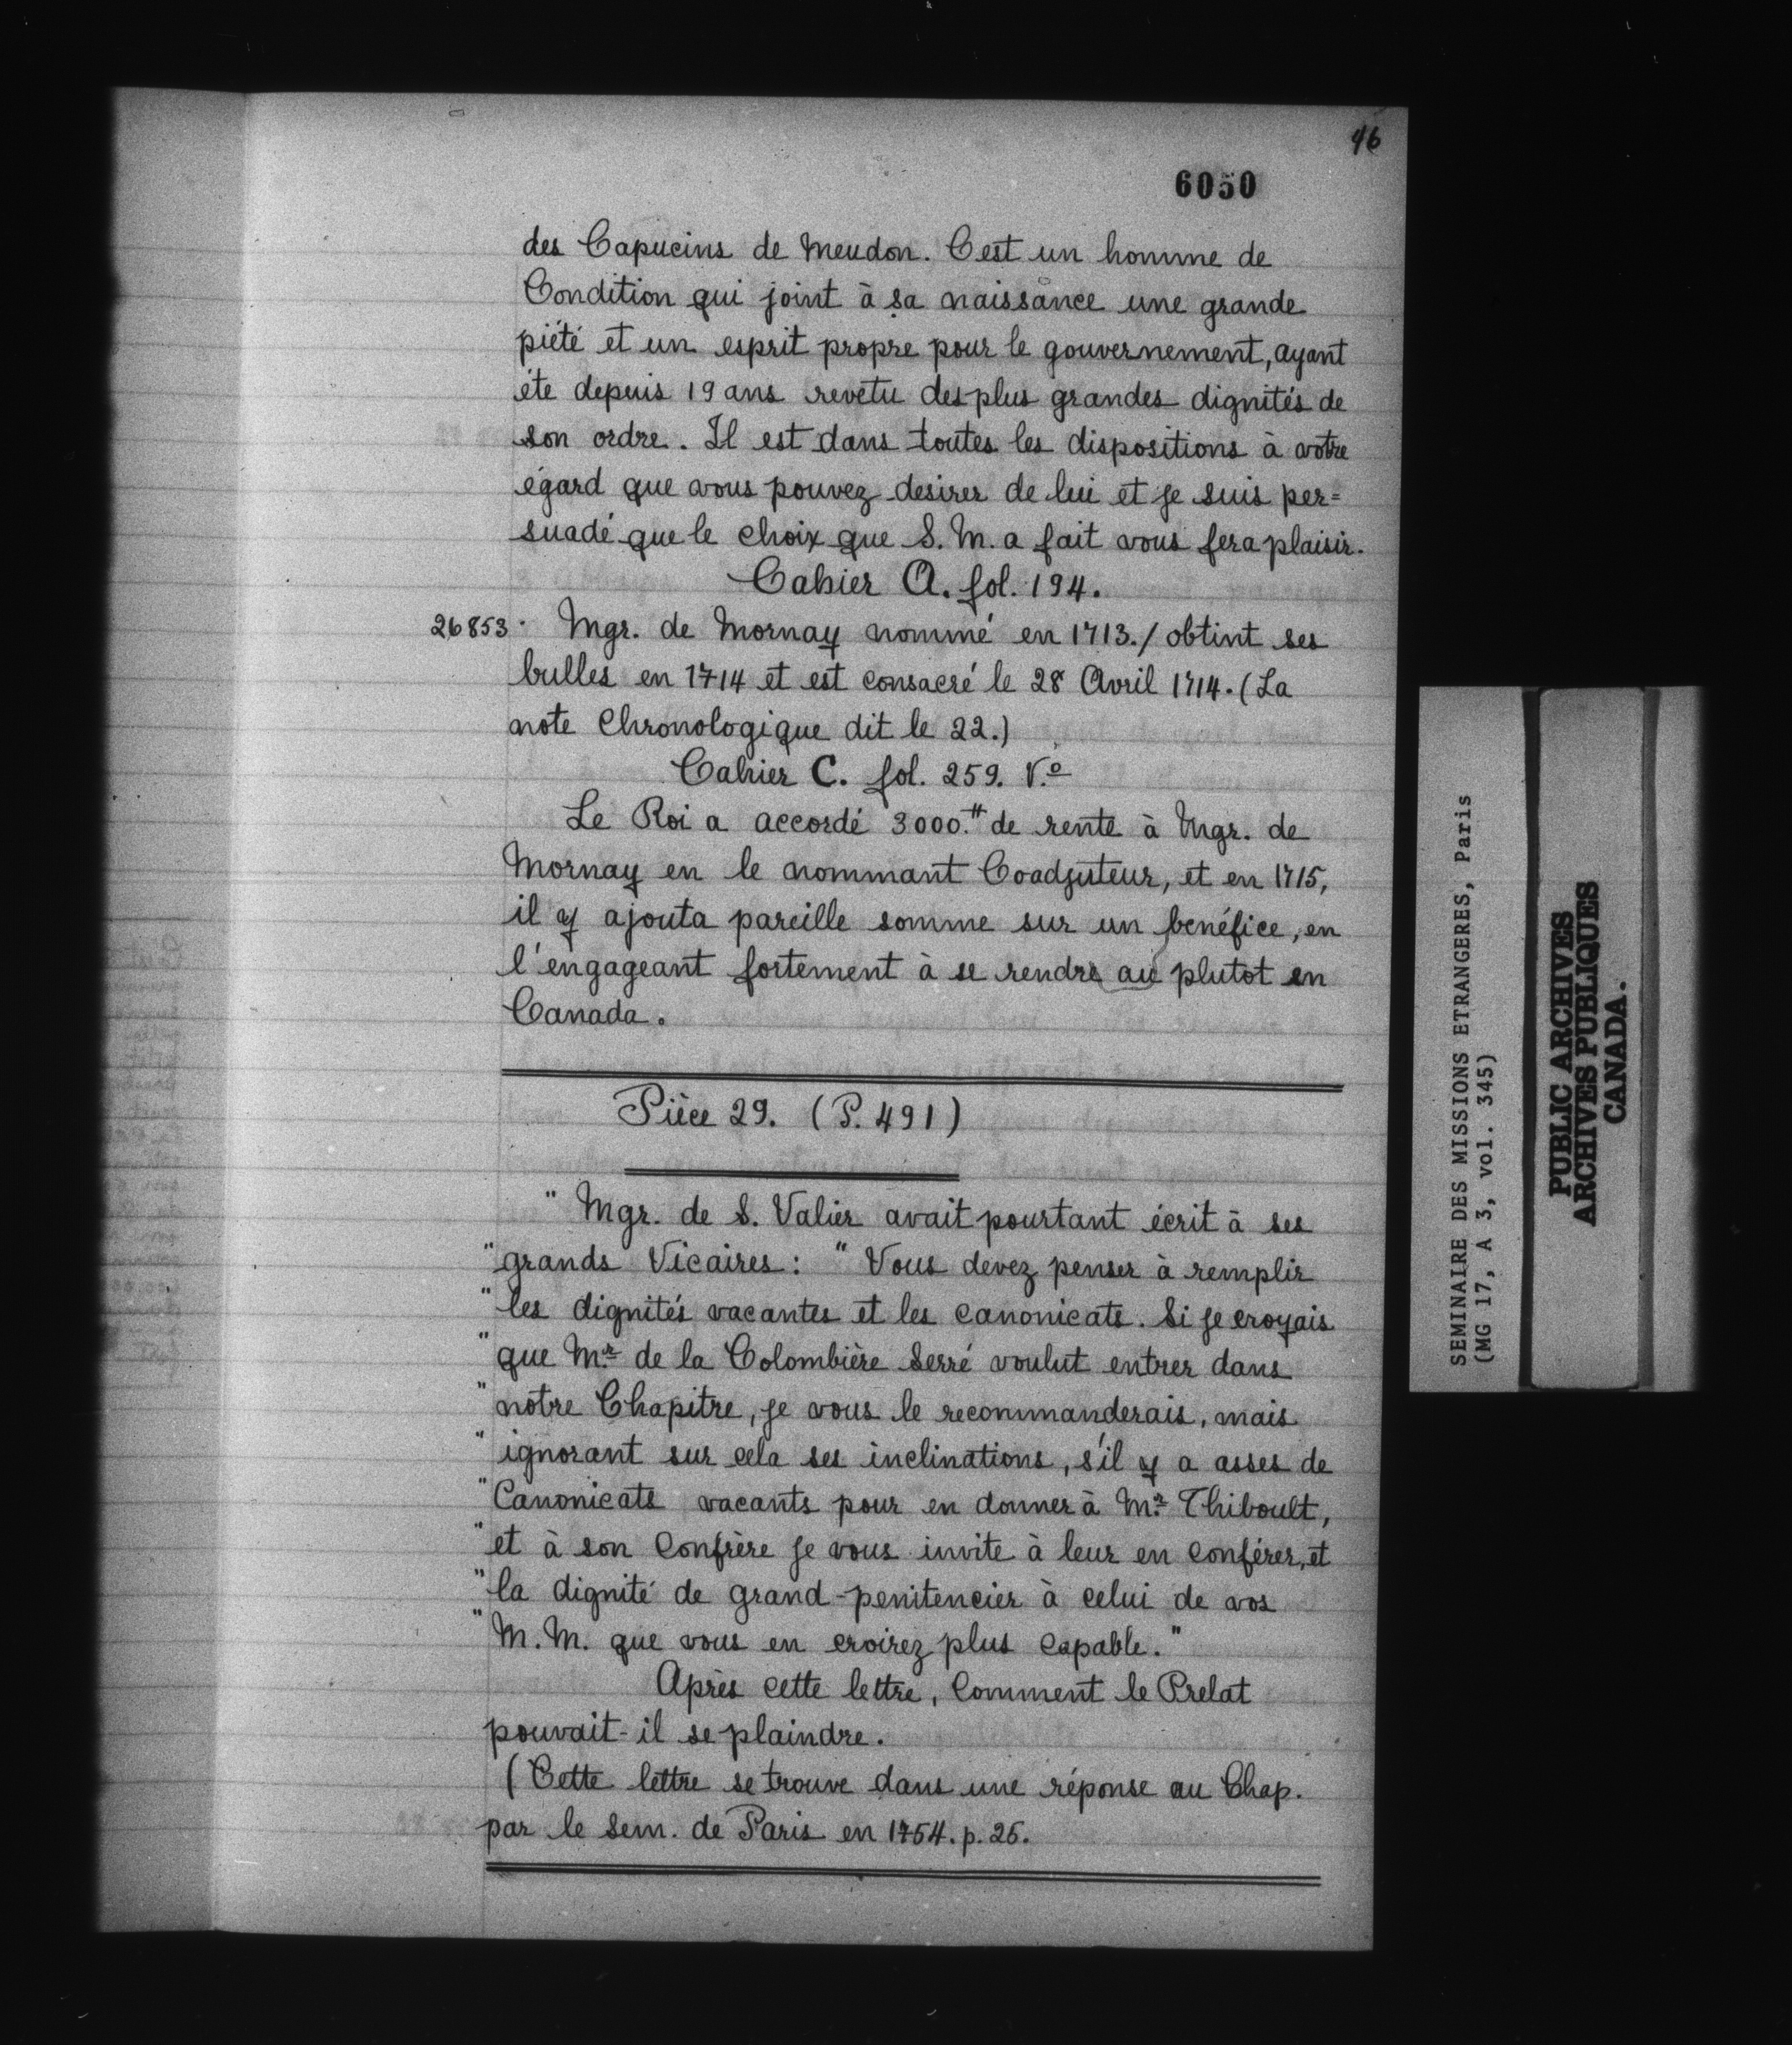 46
6050
des Capucins de Meudon. C'est un homme de
Condition qui joint à sa naissance une grande
piété et un esprit propre pour le gouvernement, ayant
éte depuis 19 ans revetu des plus grandes dignités de
son ordre. Il est dans toutes les dispositions à votre
égard que vous pouvez desirer de lui et je suis per=
suadé que le choix que S. M. a fait vous fera plaisir.
Cahier A. fol. 194.
26853. Mgr. de Mornay nommé en 1713./ obtint ses
bulles en 1714 et est consacré le 28 Avril 1714. (La
note Chronologique dit le 22.)
Cahier C. fol. 259. V.º
Le Roi a accordé 3000.# de rente à Mgr. de
Mornay en le nommant Coadjuteur, et en 1715,
il y ajouta pareille somme sur un benéfice, en
l'engageant fortement à se rendre au plutot en
Canada.
Pièce 29. (P. 491)
" Mgr. de S. Valier avait pourtant écrit à ses
" grands Vicaires : " Vous devez penser à remplir
" les dignités vacantes et les canonicats. Si je croyais
" que Mr. de la Colombière Serré voulut entrer dans
" notre Chapitre, je vous le recommanderais, mais
" ignorant sur cela ses inclinations, s'il y a asses de
" Canonicats vacants pour en donner à Mr. Thiboult,
" et à son Confrère je vous invite à leur en conférer, et
" la dignité de grand-penitencier à celui de vos
" M. M. que vous en croirez plus capable."
Après cette lettre, Comment le Prelat
pouvait-il se plaindre.
(Cette lettre se trouve dans une réponse au Chap.
par le Sem. de Paris en 1754. p. 26.
SEMINAIRE DES MISSIONS ETRANGERES, Paris
(MG 17, A 3, vol. 345)
PUBLIC ARCHIVES
ARCHIVES PUBLIQUES
CANADA.